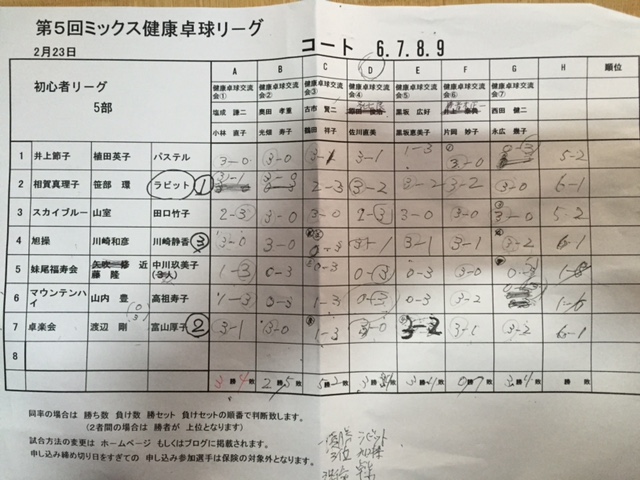 第5回ミックス健康卓球リーグ
2月23日
コート 6.7.8.9
初心者リーグ
5部
A B C D E F G H 順位
健康卓球交流会① 健康卓球交流会② 健康卓球交流会③ 健康卓球交流会④ 健康卓球交流会⑤ 健康卓球交流会⑥ 健康卓球交流会⑦
塩成 謙二 奥田 孝重 古市 賢二 黒坂 広好 西田 健二
小林 直子 光畑 寿子 鶴田 祥子 佐川直美 黒坂恵美子 片岡 妙子 永広 景子
1 井上節子 植田英子 パステル 3-0 3-0 3-1 3-1 1-3 3-0 0-3 5-2
2 相賀真理子 笹部 環 ラビット 1 3-1 3-0 2-3 3-2 3-2 3-2 3-0 6-1
3 スカイブルー 山室 田口竹子 2-3 3-0 3-0 2-3 3-0 3-0 3-0 5-2
4 旭操 川崎和彦 川崎静香 3 3-0 3-0 0-3 3-1 3-1 3-1 3-2 6-1
5 妹尾福寿会 近藤 隆 中川玖美子 (3人) 1-3 0-3 0-3 0-3 0-3 0-3
6 マウンテンハイ 山内 豊 高祖寿子 1-3 3-0 1-3 0-3 0-3 3-2 1-6
7 卓楽会 渡辺 剛 富山厚子 2 3-1 3-0 1-3 3-0 3-2 3-1 3-2 6-1
8
3勝4敗 2勝5敗 5勝2敗 3勝4敗 3勝4敗 0勝7敗 3勝4敗 勝 敗
同率の場合は 勝ち数 負け数 勝セット 負けセットの順番で判断致します。
(2者間の場合は 勝者が 上位となります)
試合方法の変更は ホームページ もしくはブログに掲載されます。
申し込み締め切り日をすぎての 申し込み参加選手は保険の対象外となります。
優勝 ラビット